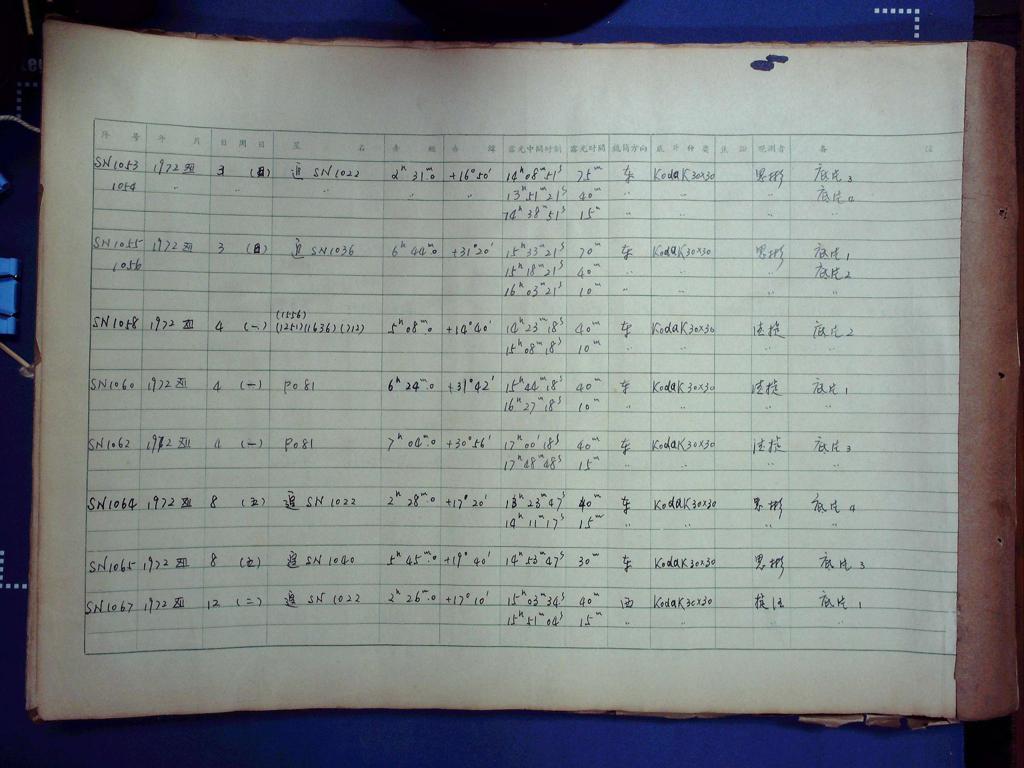 序 号 年 月 日 周日 星 名 赤 經 赤 緯 露光中間时刻 露光时間 鏡筒方向 底片种类 焦 距 观测者 备 註
SN1053 1972 XII 3 (日) 追 SN1022 2ʰ 31ᵐ.0 +16°50′ 14ʰ 08ᵐ 51ˢ 75ᵐ 东 Kodak 30×30 思彬 底片3
1054 〃 〃 〃 〃 13ʰ 51ᵐ 21ˢ 40ᵐ 〃 〃 〃 底片4
14ʰ 38ᵐ 51ˢ 15ᵐ 〃 〃 〃
SN1055 1972 XII 3 (日) 追 SN1036 6ʰ 44ᵐ.0 +31°20′ 15ʰ 33ᵐ 21ˢ 70ᵐ 东 Kodak 30×30 思彬 底片1
1056 15ʰ 18ᵐ 21ˢ 40ᵐ 〃 〃 〃 底片2
16ʰ 03ᵐ 21ˢ 10ᵐ 〃 〃 〃
(1556)
SN1058 1972 XII 4 (一) (1251)(1636)(712) 5ʰ 08ᵐ.0 +14°40′ 14ʰ 23ᵐ 18ˢ 40ᵐ 东 Kodak 30×30 底片2
15ʰ 08ᵐ 18ˢ 10ᵐ 〃 〃 〃
SN1060 1972 XII 4 (一) P081 6ʰ 24ᵐ.0 +31°42′ 15ʰ 44ᵐ 18ˢ 40ᵐ 东 Kodak 30×30 底片1
16ʰ 27ᵐ 18ˢ 10ᵐ 〃 〃 〃
SN1062 1972 XII 4 (一) P081 7ʰ 04ᵐ.0 +30°56′ 17ʰ 00′ 18ˢ 40ᵐ 东 Kodak 30×30 底片3
17ʰ 48ᵐ 48ˢ 15ᵐ 〃 〃 〃
SN1064 1972 XII 8 (五) 追 SN1022 2ʰ 28ᵐ.0 +17°20′ 13ʰ 23ᵐ 47ˢ 40ᵐ 东 Kodak 30×30 思彬 底片4
14ʰ 11ᵐ 17ˢ 15ᵐ 〃 〃 〃 〃
SN1065 1972 XII 8 (五) 追 SN1040 5ʰ 45ᵐ.0 +19°40′ 14ʰ 53ᵐ 47ˢ 30ᵐ 东 Kodak 30×30 思彬 底片3
SN1067 1972 XII 12 (二) 追 SN1022 2ʰ 26ᵐ.0 +17°10′ 15ʰ 03ᵐ 34ˢ 40ᵐ 西 Kodak 30×30 底片1
15ʰ 51ᵐ 04ˢ 15ᵐ 〃 〃 〃 〃